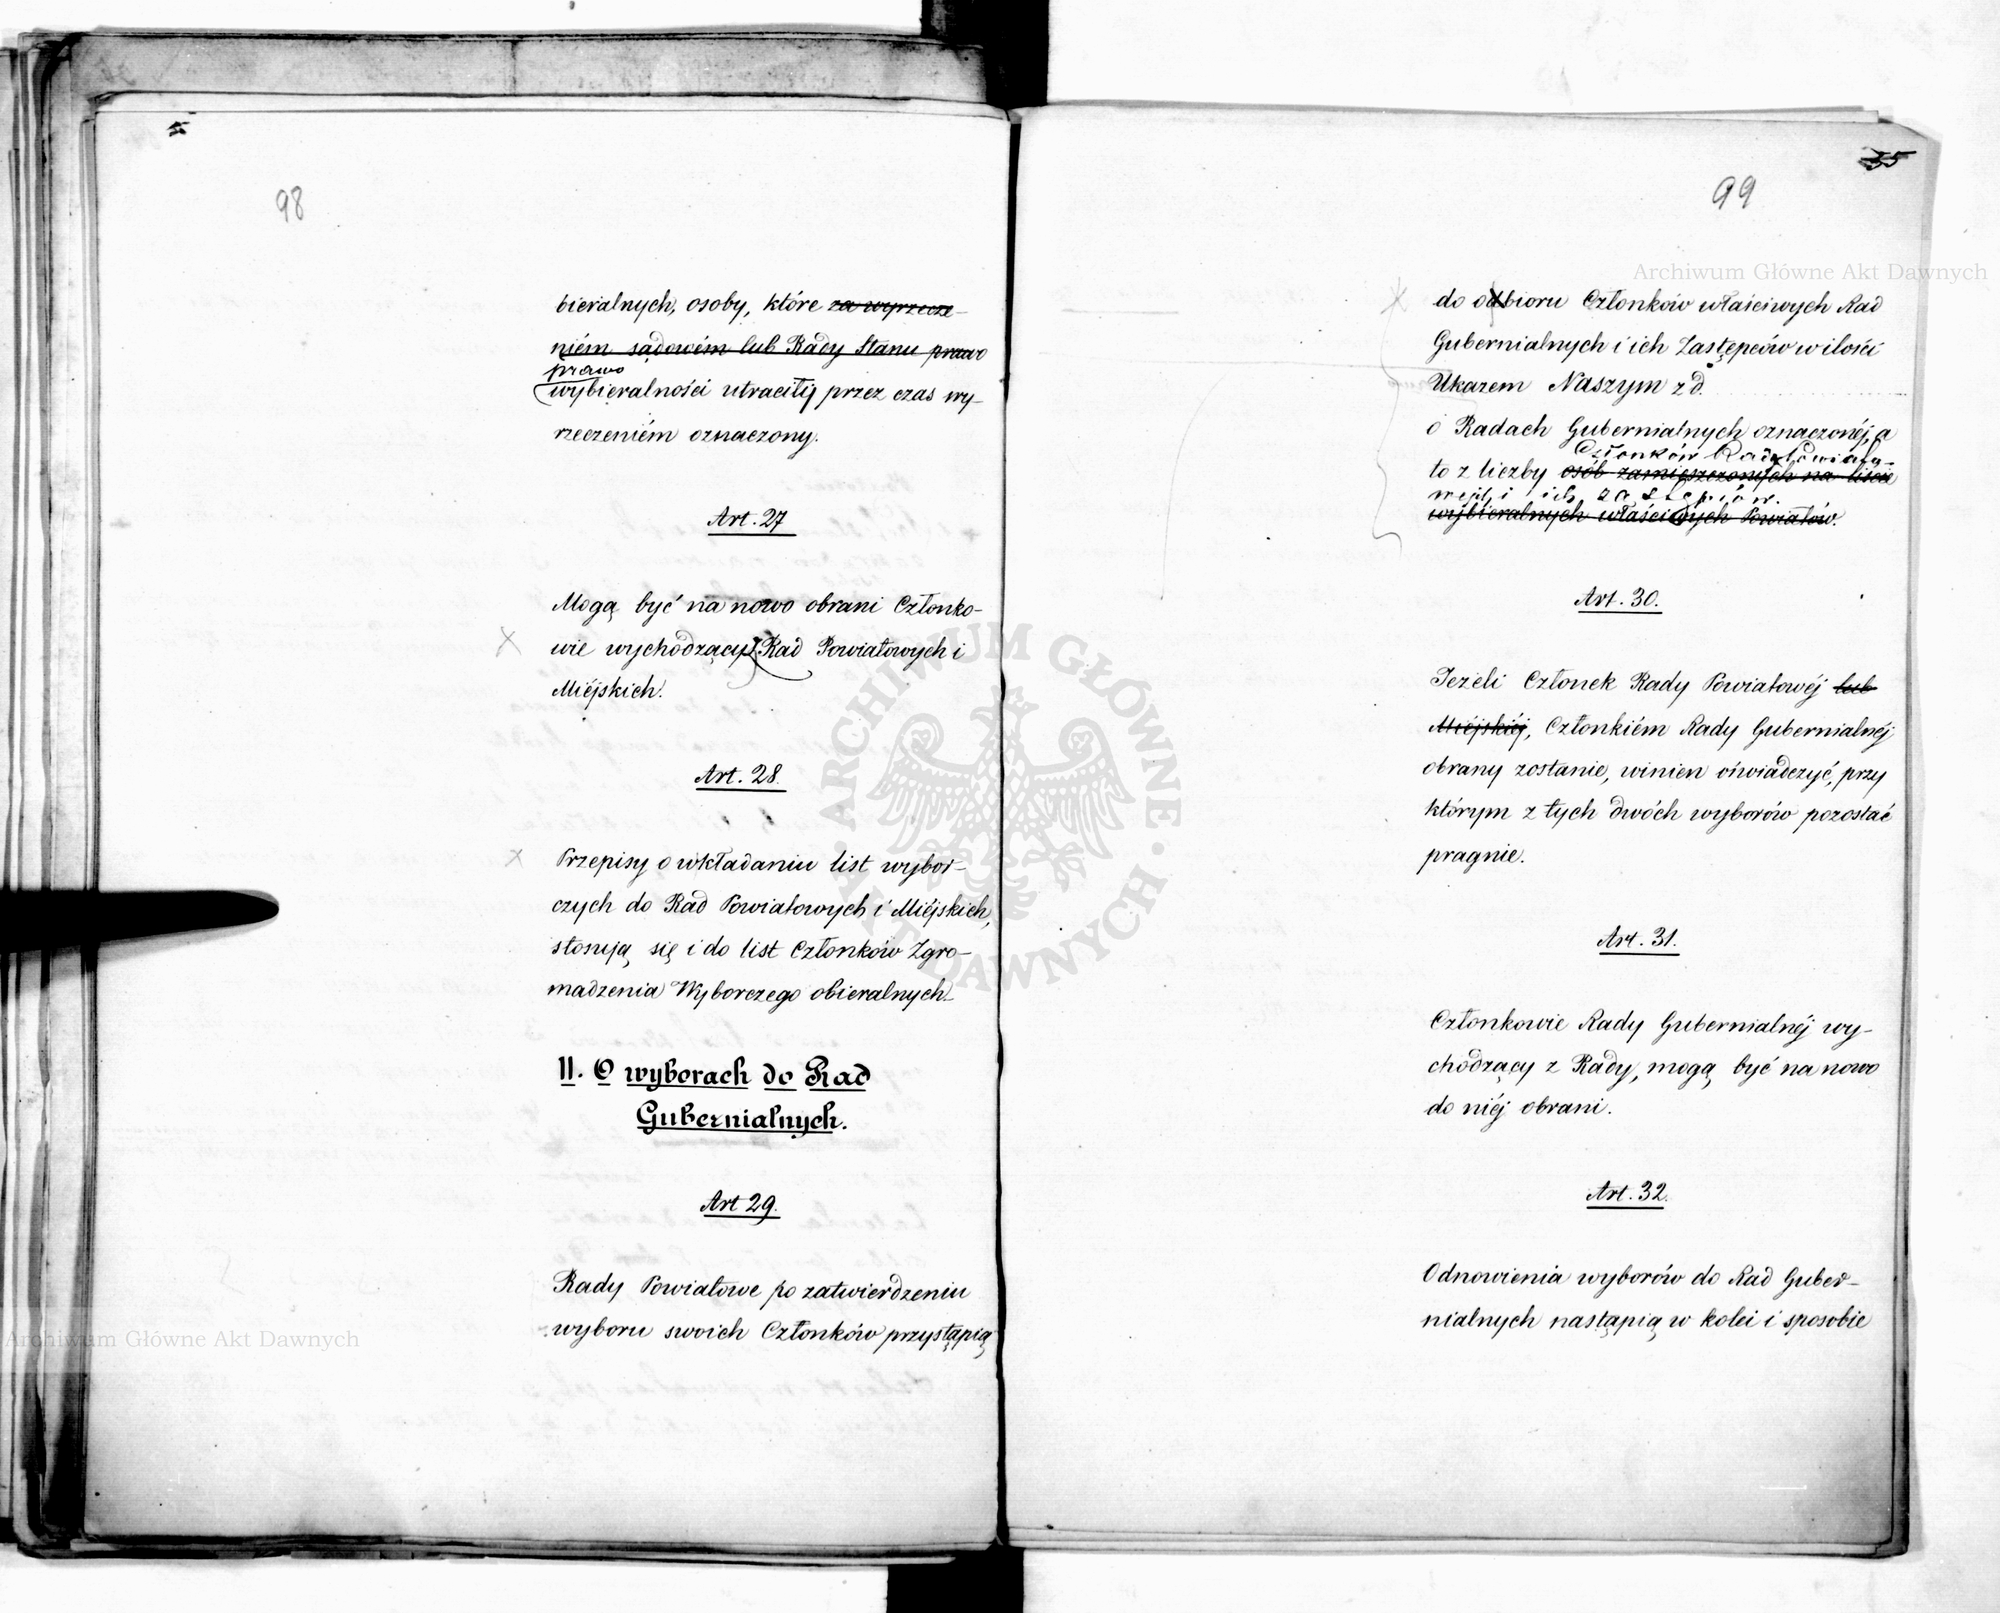 98
bieralnych, osoby, które za wyrzecze-
niém sądowém lub Rady Stanu prawo
prawo
wybieralności utraciły przez czas wy-
rzeczeniém oznaczony.
Art. 27
Mogą być na nowo obrani Członko-
wie wychodzący Rad Powiatowych i
Miéjskich.
Art. 28.
Przepisy o wkładaniu list wybor-
czych do Rad Powiatowych i Miéjskich,
stosują się i do list Członków Zgro-
madzenia Wyborczego obieralnych.
II. O wyborach do Rad
Gubernialnych.
Art 29.
Rady Powiatowe po zatwierdzeniu
wyboru swoich Członków przystąpią
35
99
do odbioru Członków właściwych Rad
Gubernialnych i ich Zastępców w ilości
Ukazem Naszym z d.
o Radach Gubernialnych oznaczonéj, a
Członków Rady Powiato-
to z liczby osób zamieszczonych na liście
wej i ich zastępców.
wybieralnych właściwych Powiatów.
Art. 30.
Jeżeli Członek Rady Powiatowéj lub
Miéjskiéj, Członkiém Rady Gubernialnéj
obrany zostanie, winien oświadczyć, przy
którym z tych dwóch wyborów pozostać
pragnie.
Art. 31.
Członkowie Rady Gubernialnéj wy-
chodzący z Rady, mogą być na nowo
do niéj obrani.
Art. 32.
Odnowienia wyborów do Rad Guber-
nialnych nastąpią w kolei i sposobie
Archiwum Główne Akt Dawnych
Archiwum Główne Akt Dawnych
ARCHIWUM GŁÓWNE AKT DAWNYCH